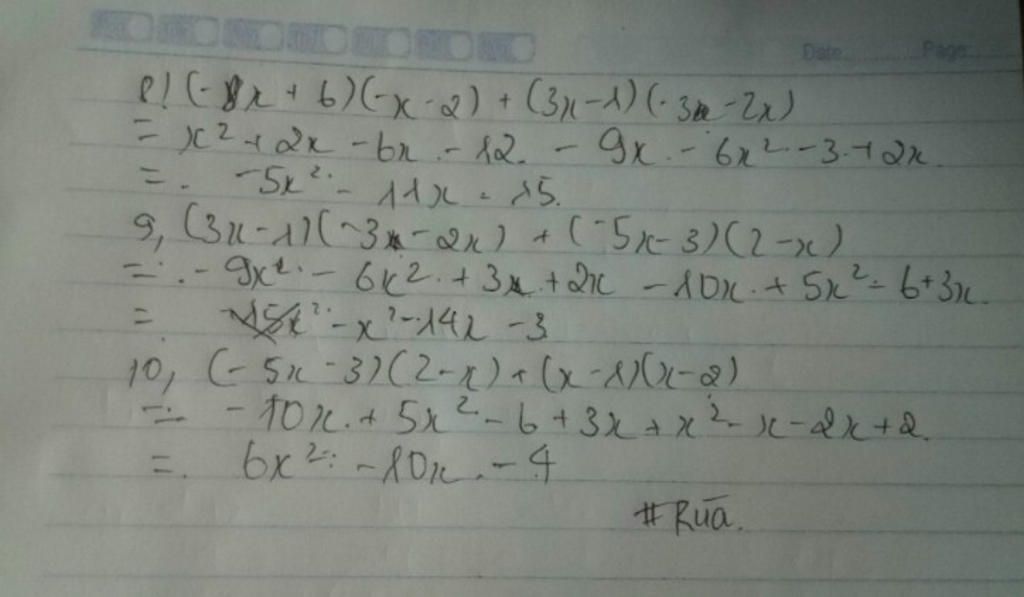 Date Page
8/ (-x + 6)(-x - 2) + (3x - 1)(-3 - 2x)
= x² + 2x - 6x - 12 - 9x - 6x² - 3 + 2x
= -5x² - 11x - 15.
9, (3x - 1)(-3 - 2x) + (-5x - 3)(2 - x)
= -9x² - 6x² + 3x + 2x - 10x + 5x² - 6 + 3x
= -x² - 14x - 3
10, (-5x - 3)(2 - x) + (x - 1)(x - 2)
= -10x + 5x² - 6 + 3x + x² - x - 2x + 2
= 6x² - 10x - 4
#Rùa.